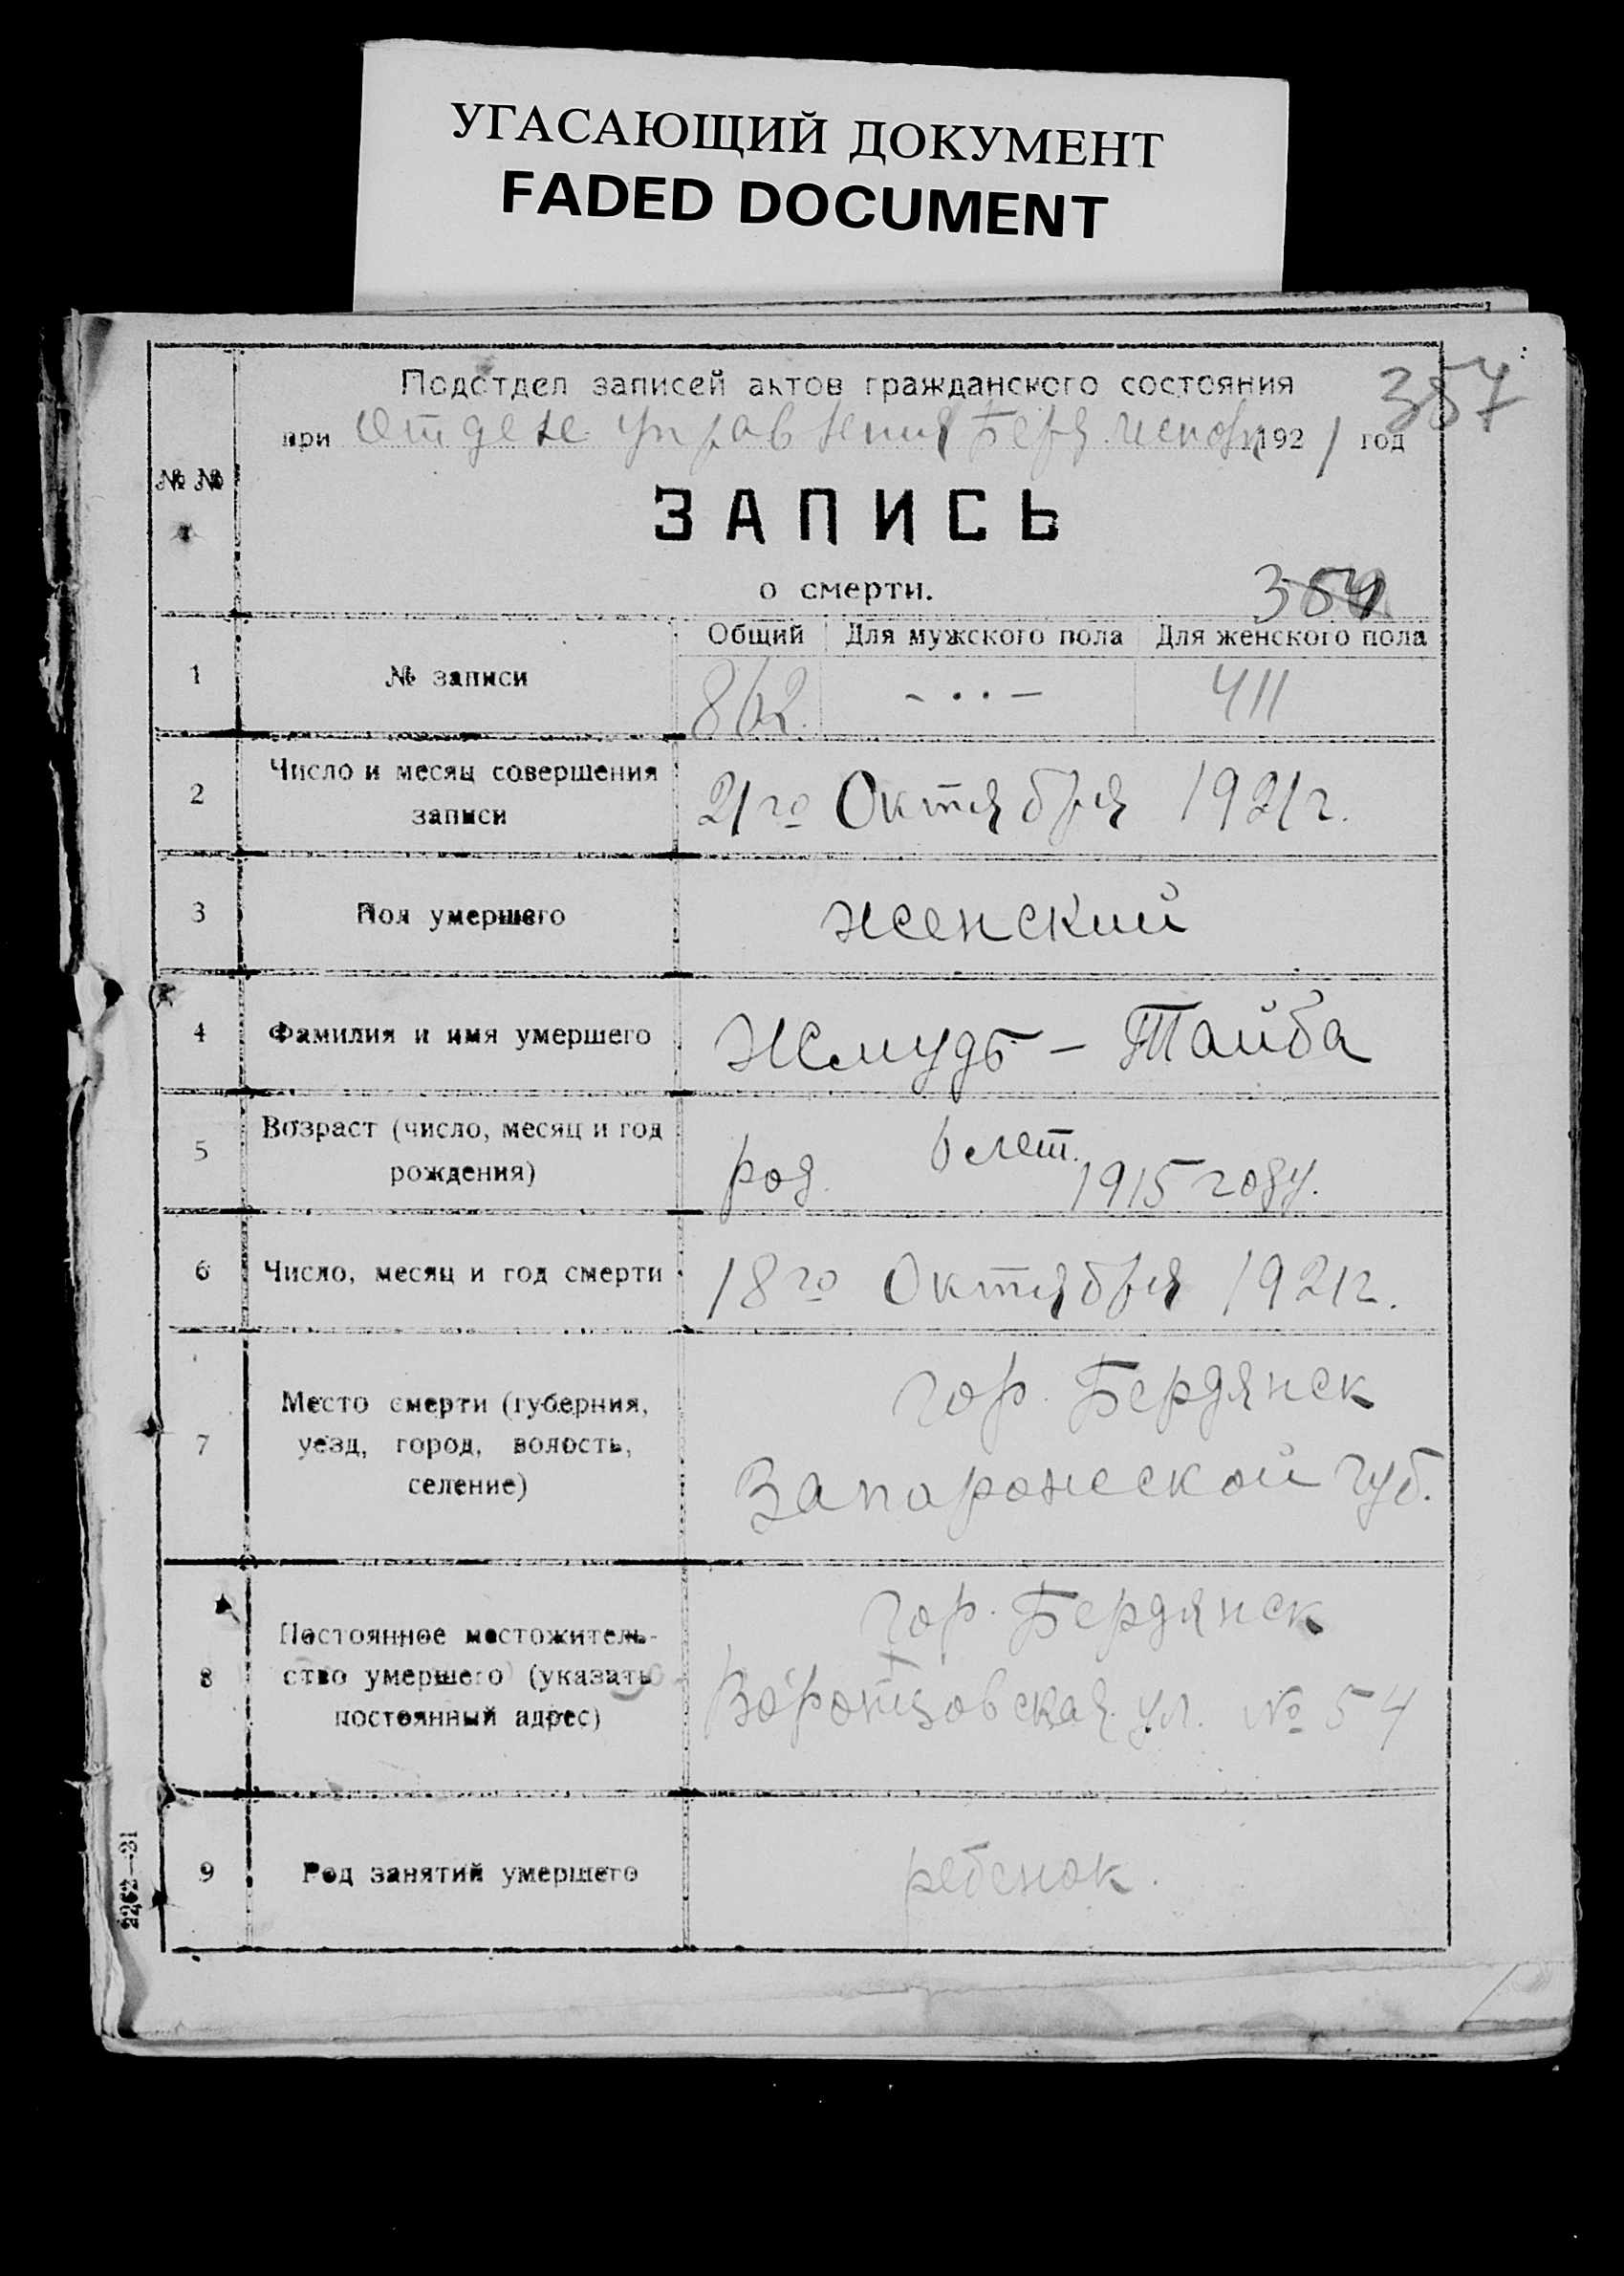 УГАСАЮЩИЙ ДОКУМЕНТ
FADED DOCUMENT
Подотдел записей актов гражданского состояния
357
при Отделе Управления Бердисполк 1921 год
№ №
ЗАПИСЬ
о смерти.
354
Общий Для мужского пола Для женского пола
1 № записи 862. - . . - 411
2 Число и месяц совершения
записи 21го Октября 1921г.
3 Пол умершего женский
4 Фамилия и имя умершего Жмудь - Тайба
5 Возраст (число, месяц и год
рождения) 6 лет.
род. 1915 году.
6 Число, месяц и год смерти 18го Октября 1921г.
7 Место смерти (губерния,
уезд, город, волость,
селение)
гор. Бердянск
Запорожской губ.
8 Постоянное местожитель-
ство умершего (указать
постоянный адрес)
гор. Бердянск
Воронцовская ул. № 54
9 Род занятий умершего ребенок.
2262—21